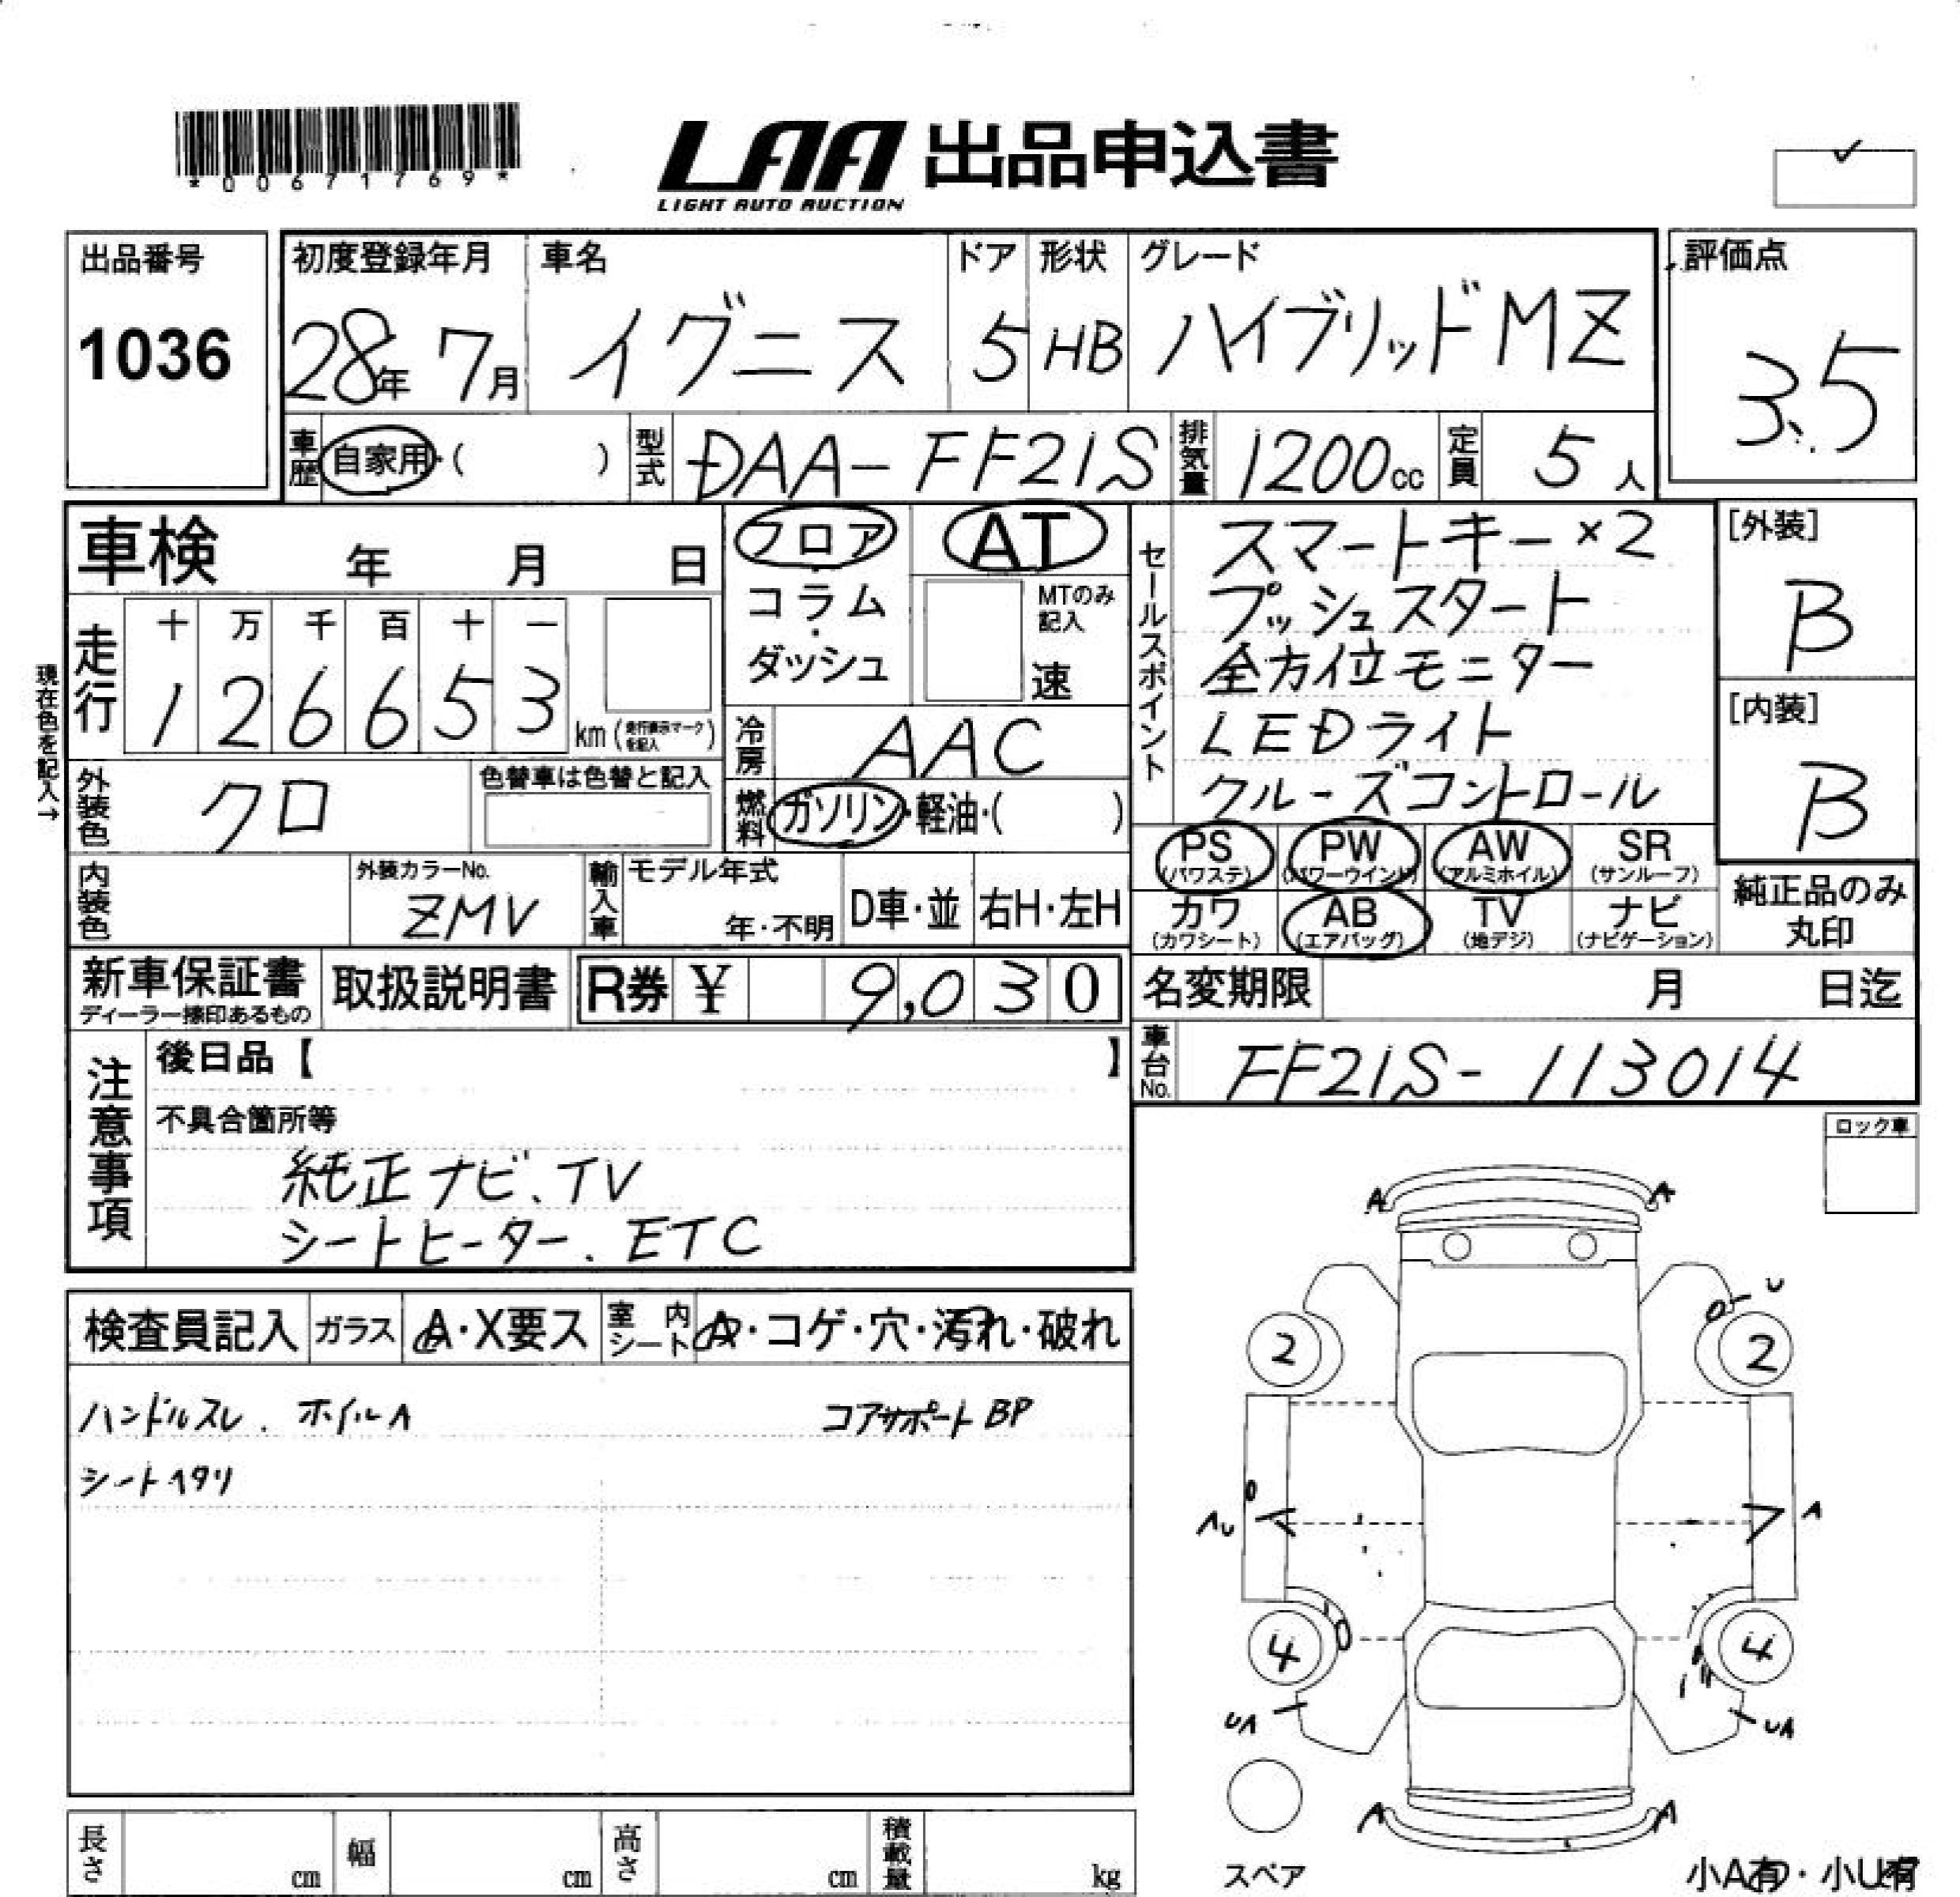 *00671769*
LAA 出品申込書
LIGHT AUTO AUCTION
出品番号
1036
初度登録年月
28年 7月
車名
イグニス
ドア
5
形状
HB
グレード
ハイブリッドMZ
評価点
3.5
車歴 自家用・( )
型式 DAA-FF21S
排気量 1200cc
定員 5人
車検 年 月 日
フロア
コラム
・
ダッシュ
AT
MTのみ記入
速
セールスポイント
スマートキー×2
プッシュスタート
全方位モニター
LEDライト
クルーズコントロール
[外装]
B
[内装]
B
走行
十 万 千 百 十 一
1 2 6 6 5 3 km (走行表示マークを記入)
現在色を記入→
冷房 AAC
外装色 クロ
色替車は色替と記入
燃料 ガソリン・軽油・( )
PS (パワステ)
PW (パワーウインド)
AW (アルミホイル)
SR (サンルーフ)
カワ (カワシート)
AB (エアバッグ)
TV (地デジ)
ナビ (ナビゲーション)
純正品のみ
丸印
内装色
外装カラーNo.
ZMV
輸入車
モデル年式
年・不明
D車・並
右H・左H
新車保証書
ディーラー捺印あるもの
取扱説明書
R券 ¥ 9,030
名変期限 月 日迄
車台No. FF21S-113014
注意事項
後日品【 】
不具合箇所等
純正ナビ、TV
シートヒーター、ETC
ロック車
検査員記入
ガラス A・X要ス
室内シート A・コゲ・穴・汚れ・破れ
ハンドルスレ、ホイルA
コアサポートBP
シートヘタリ
A A
U
2 2
AU A
4 4
UA UA
A A
スペア
小A有・小U有
長さ cm
幅 cm
高さ cm
積載量 kg